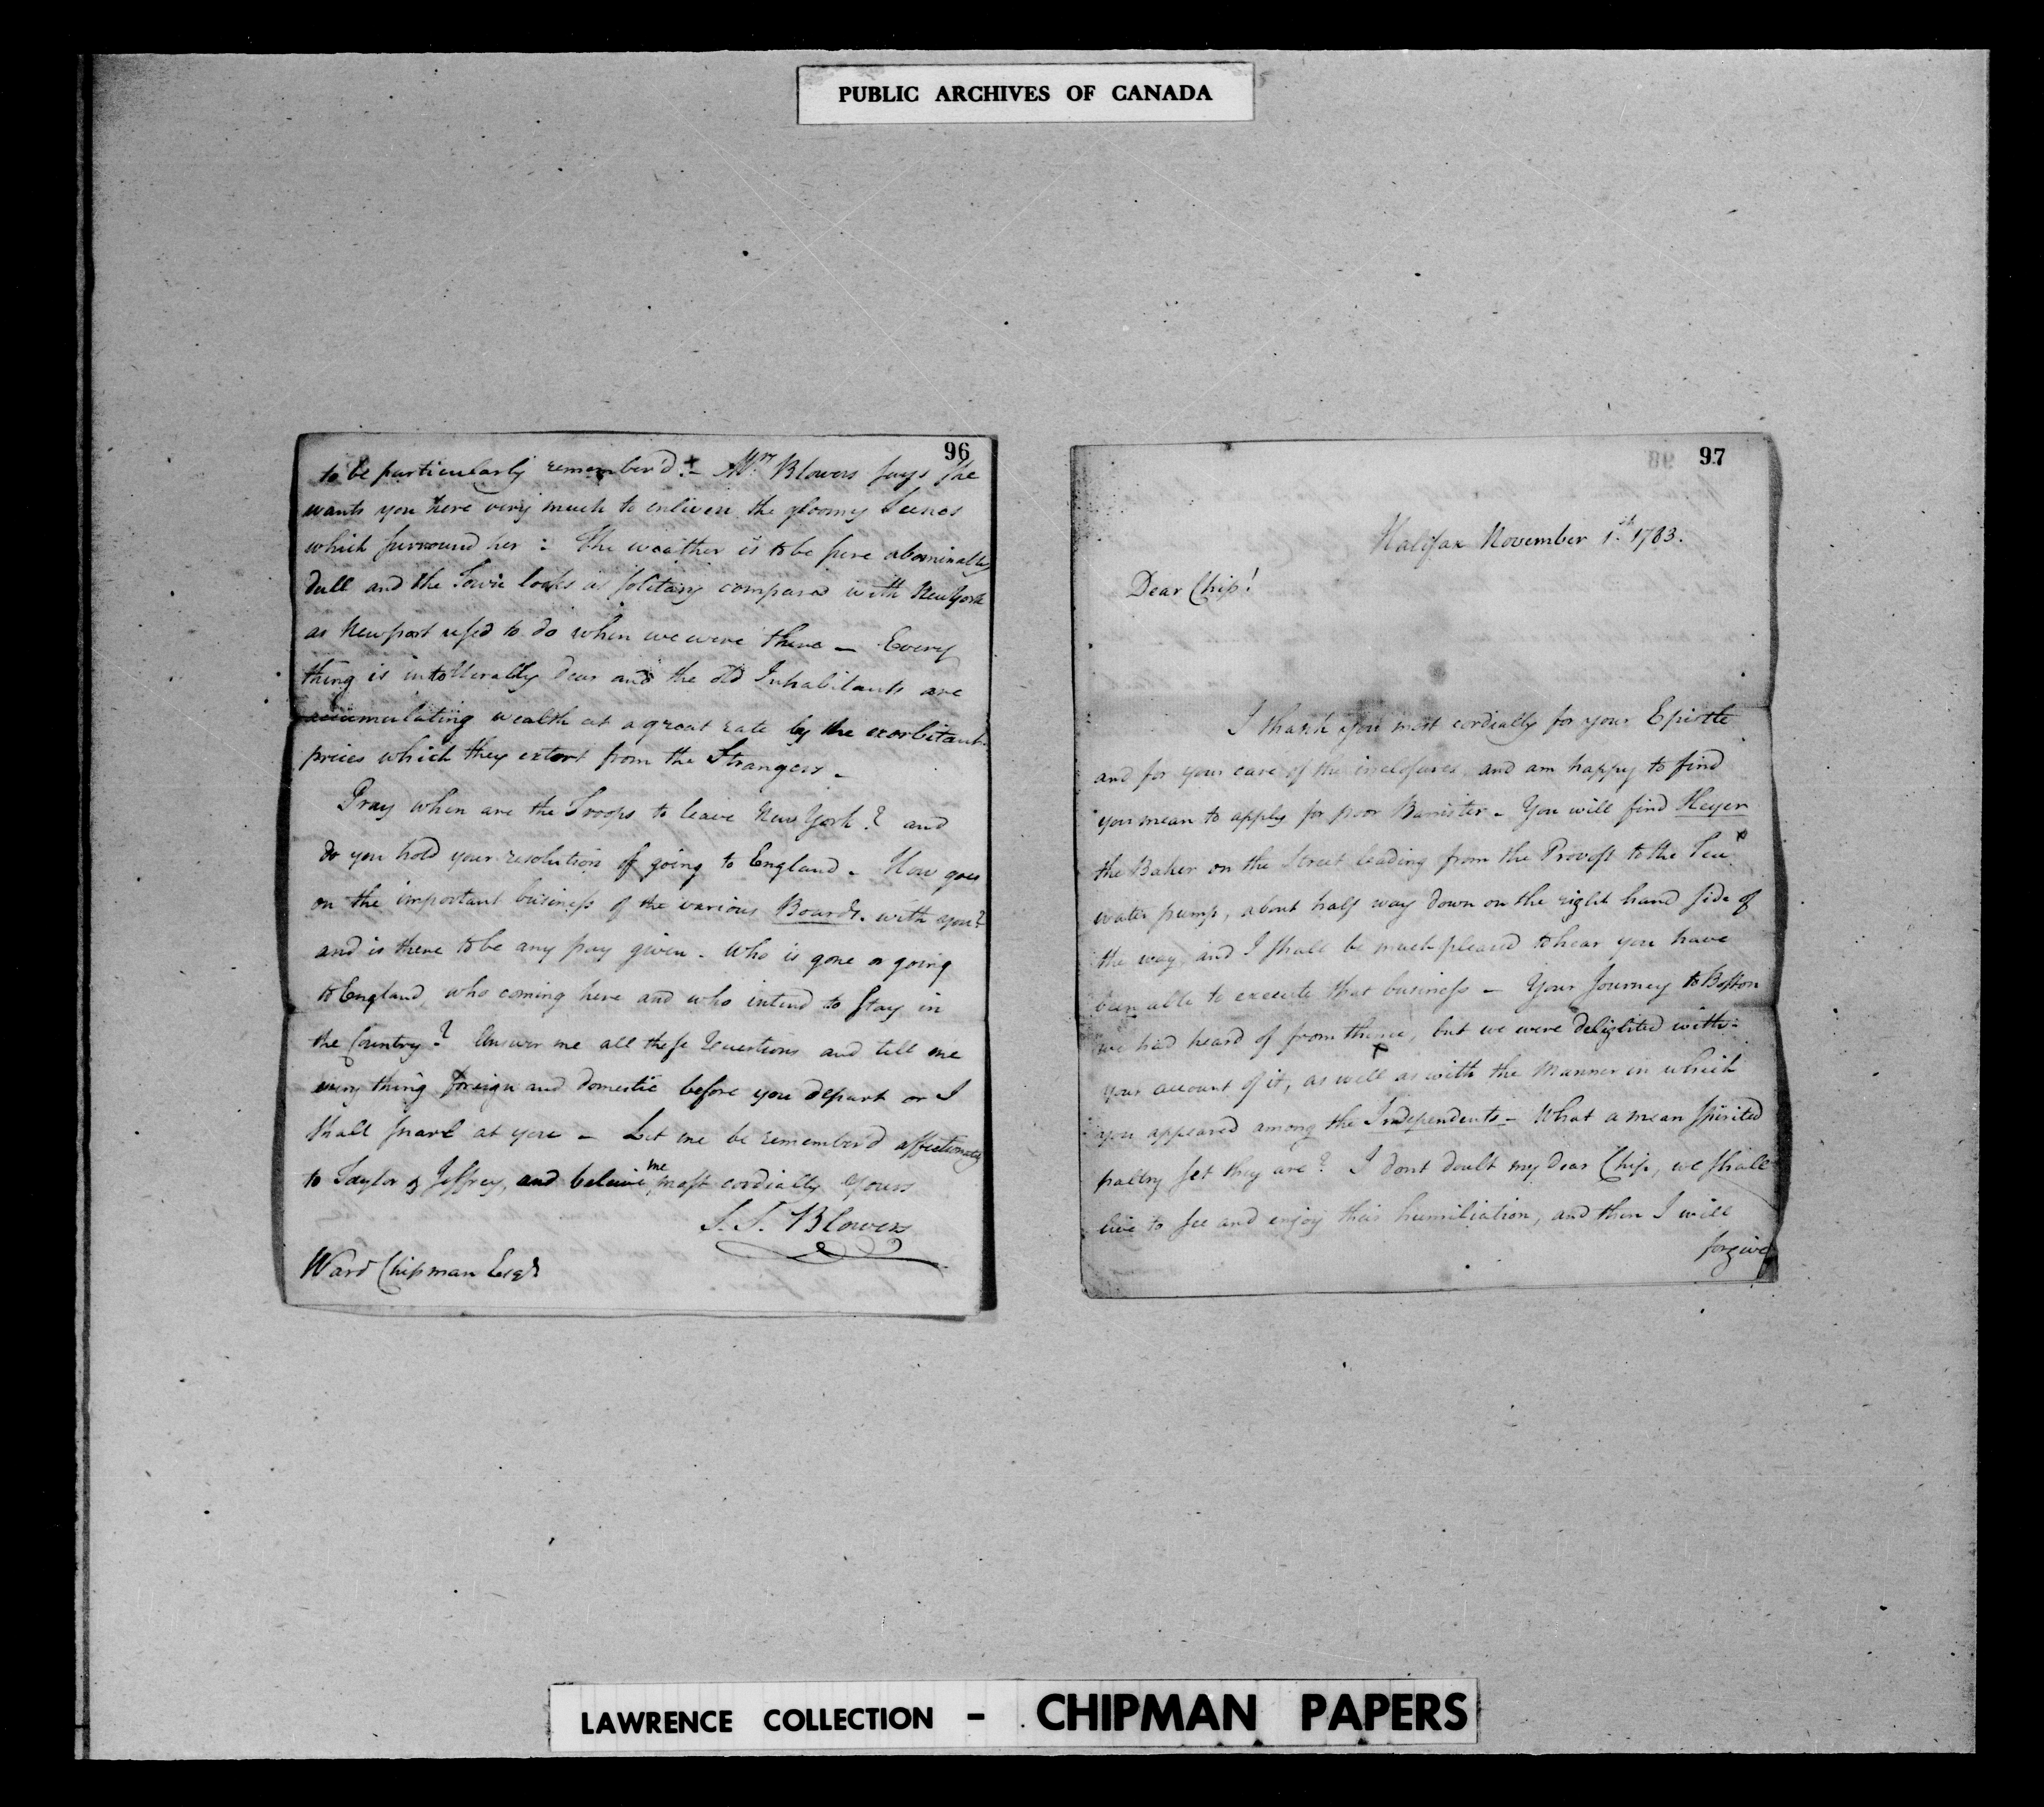 PUBLIC ARCHIVES OF CANADA
96
to be particularly remember'd. — Mrs Blowers says she
wants you here very much to enliven the gloomy Scenes
which surround her : The weather is to be sure abominably
dull and the Town looks as solitary compared with New York
as Newport used to do when we were there — Every
thing is intollerably dear and the old Inhabitants are
accumulating wealth at a great rate by the exorbitant
prices which they extort from the Strangers —
Pray when are the Troops to leave New York? and
do you hold your resolution of going to England — How goes
on the important business of the various Boards. with you?
and is there to be any pay given — Who is gone or going
to England, who coming here and who intend to stay in
the Country? Answer me all these Questions and tell me
every thing foreign and domestic before you depart or I
shall snarl at you — Let me be remember'd affectionately
to Taylor & Jeffrey, and beleive me most cordially Yours
S. S. Blowers
Ward Chipman Esqr
97
Halifax November 1.st 1783.
Dear Chip!
I thank you most cordially for your Epistle
and for your care of the inclosures and am happy to find
you mean to apply for poor Banister — You will find Heyer
the Baker on the Street leading from the Provost to the Tea
water pump, about half way down on the right hand side of
the way and I shall be much pleased to hear you have
been able to execute that business — Your Journey to Boston
we had heard of from thence, but we were delighted with
your account of it, as well as with the Manner in which
you appeared among the Independents — What a mean spirited
paltry set they are? I dont doubt my dear Chip, we shall
live to see and enjoy their humiliation, and then I will
forgive
LAWRENCE COLLECTION - CHIPMAN PAPERS